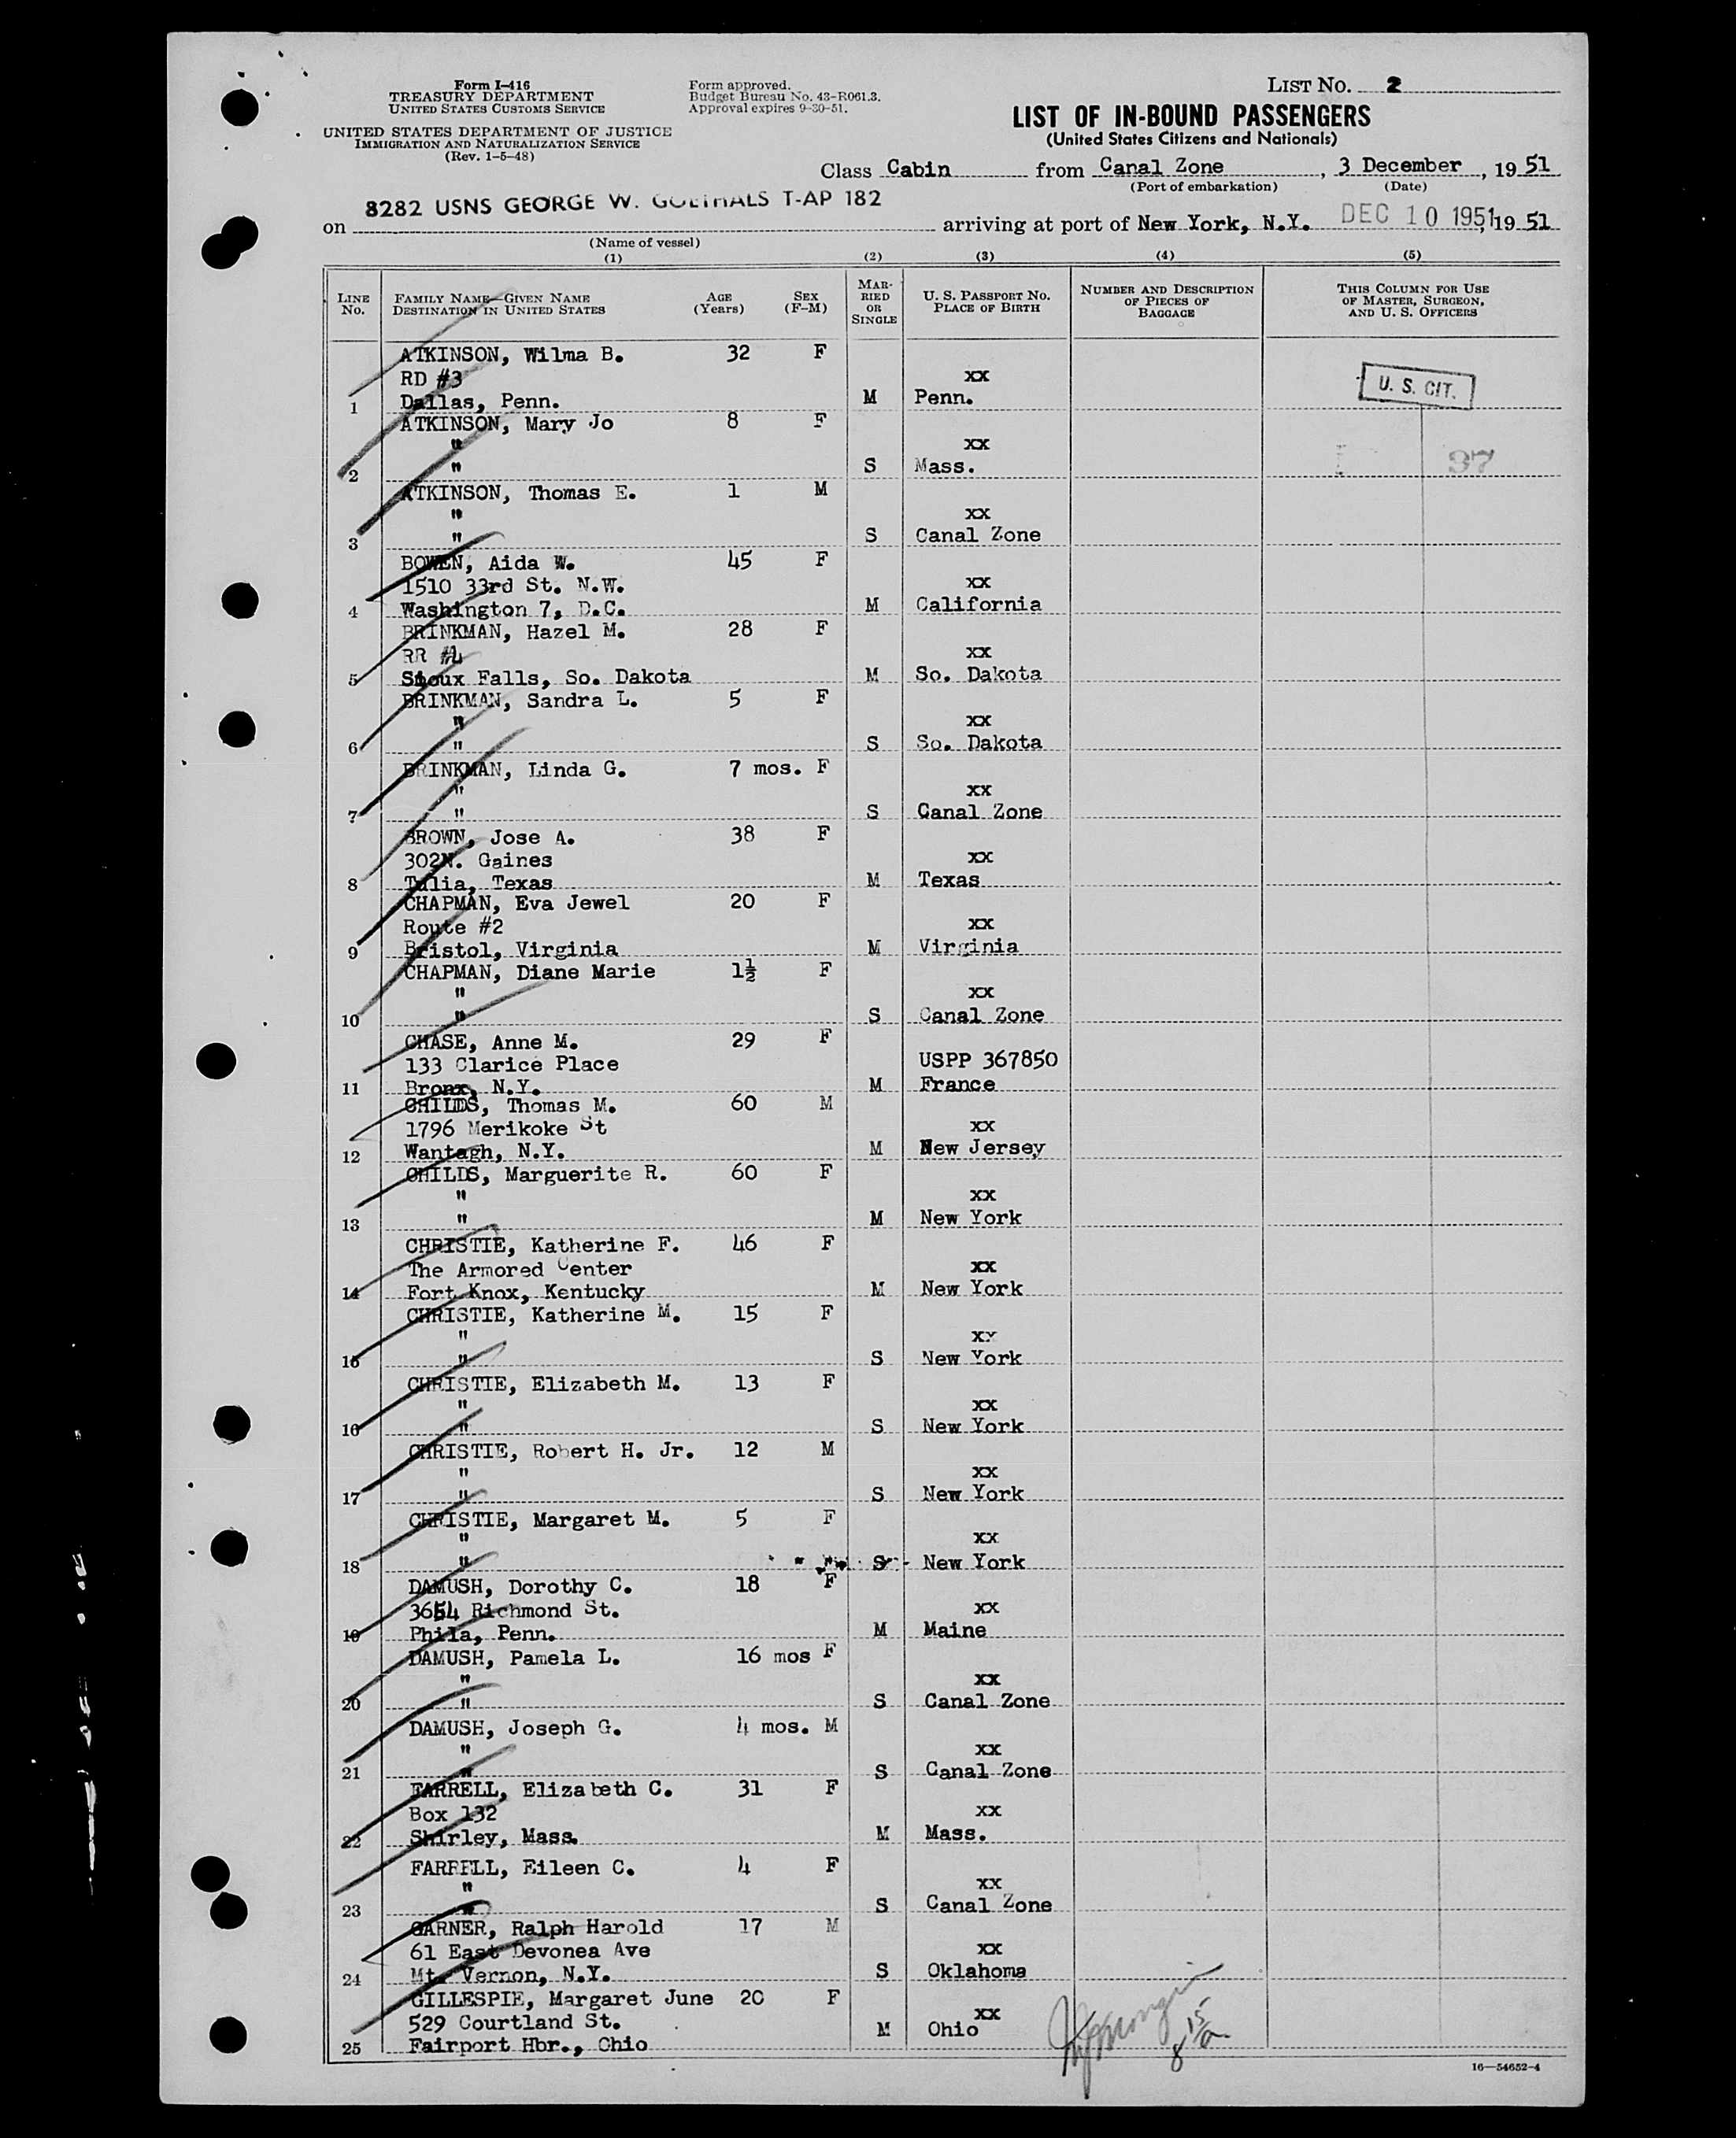 Form I-416
TREASURY DEPARTMENT
UNITED STATES CUSTOMS SERVICE
UNITED STATES DEPARTMENT OF JUSTICE
IMMIGRATION AND NATURALIZATION SERVICE
(Rev. 1-5-48)
Form approved.
Budget Bureau No. 43-R061.3.
Approval expires 9-30-51.
LIST NO. 2
LIST OF IN-BOUND PASSENGERS
(United States Citizens and Nationals)
Class Cabin from Canal Zone, 3 December, 19 51
(Port of embarkation) (Date)
on 8282 USNS GEORGE W. GOETHALS T-AP 182 arriving at port of New York, N.Y. DEC 10 1951, 19 51
(Name of vessel)
(1) (2) (3) (4) (5)
LINE No. FAMILY NAME—GIVEN NAME DESTINATION IN UNITED STATES AGE (Years) SEX (F-M) MARRIED OR SINGLE U. S. PASSPORT NO. PLACE OF BIRTH NUMBER AND DESCRIPTION OF PIECES OF BAGGAGE THIS COLUMN FOR USE OF MASTER, SURGEON, AND U. S. OFFICERS
ATKINSON, Wilma B. 32 F
RD #3 xx
1 Dallas, Penn. M Penn. U. S. CIT.
ATKINSON, Mary Jo 8 F
" xx
2 " S Mass. 37
ATKINSON, Thomas E. 1 M
" xx
3 " S Canal Zone
BOWEN, Aida W. 45 F
1510 33rd St. N.W. xx
4 Washington 7, D.C. M California
BRINKMAN, Hazel M. 28 F
RR #4 xx
5 Sioux Falls, So. Dakota M So. Dakota
BRINKMAN, Sandra L. 5 F
" xx
6 " S So. Dakota
BRINKMAN, Linda G. 7 mos. F
" xx
7 " S Canal Zone
BROWN, Jose A. 38 F
302N. Gaines xx
8 Tulia, Texas M Texas
CHAPMAN, Eva Jewel 20 F
Route #2 xx
9 Bristol, Virginia M Virginia
CHAPMAN, Diane Marie 1½ F
" xx
10 " S Canal Zone
CHASE, Anne M. 29 F
133 Clarice Place USPP 367850
11 Bronx, N.Y. M France
CHILDS, Thomas M. 60 M
1796 Merikoke St xx
12 Wantagh, N.Y. M New Jersey
CHILDS, Marguerite R. 60 F
" xx
13 " M New York
CHRISTIE, Katherine F. 46 F
The Armored Center xx
14 Fort Knox, Kentucky M New York
CHRISTIE, Katherine M. 15 F
" xx
15 " S New York
CHRISTIE, Elizabeth M. 13 F
" xx
16 " S New York
CHRISTIE, Robert H. Jr. 12 M
" xx
17 " S New York
CHRISTIE, Margaret M. 5 F
" xx
18 " S New York
DAMUSH, Dorothy C. 18 F
3654 Richmond St. xx
19 Phila, Penn. M Maine
DAMUSH, Pamela L. 16 mos F
" xx
20 " S Canal Zone
DAMUSH, Joseph G. 4 mos. M
" xx
21 " S Canal Zone
FARRELL, Elizabeth C. 31 F
Box 132 xx
22 Shirley, Mass. M Mass.
FARRELL, Eileen C. 4 F
" xx
23 " S Canal Zone
GARNER, Ralph Harold 17 M
61 East Devonea Ave xx
24 Mt. Vernon, N.Y. S Oklahoma
GILLESPIE, Margaret June 20 F
529 Courtland St. xx
25 Fairport Hbr., Ohio M Ohio
16—54652-4